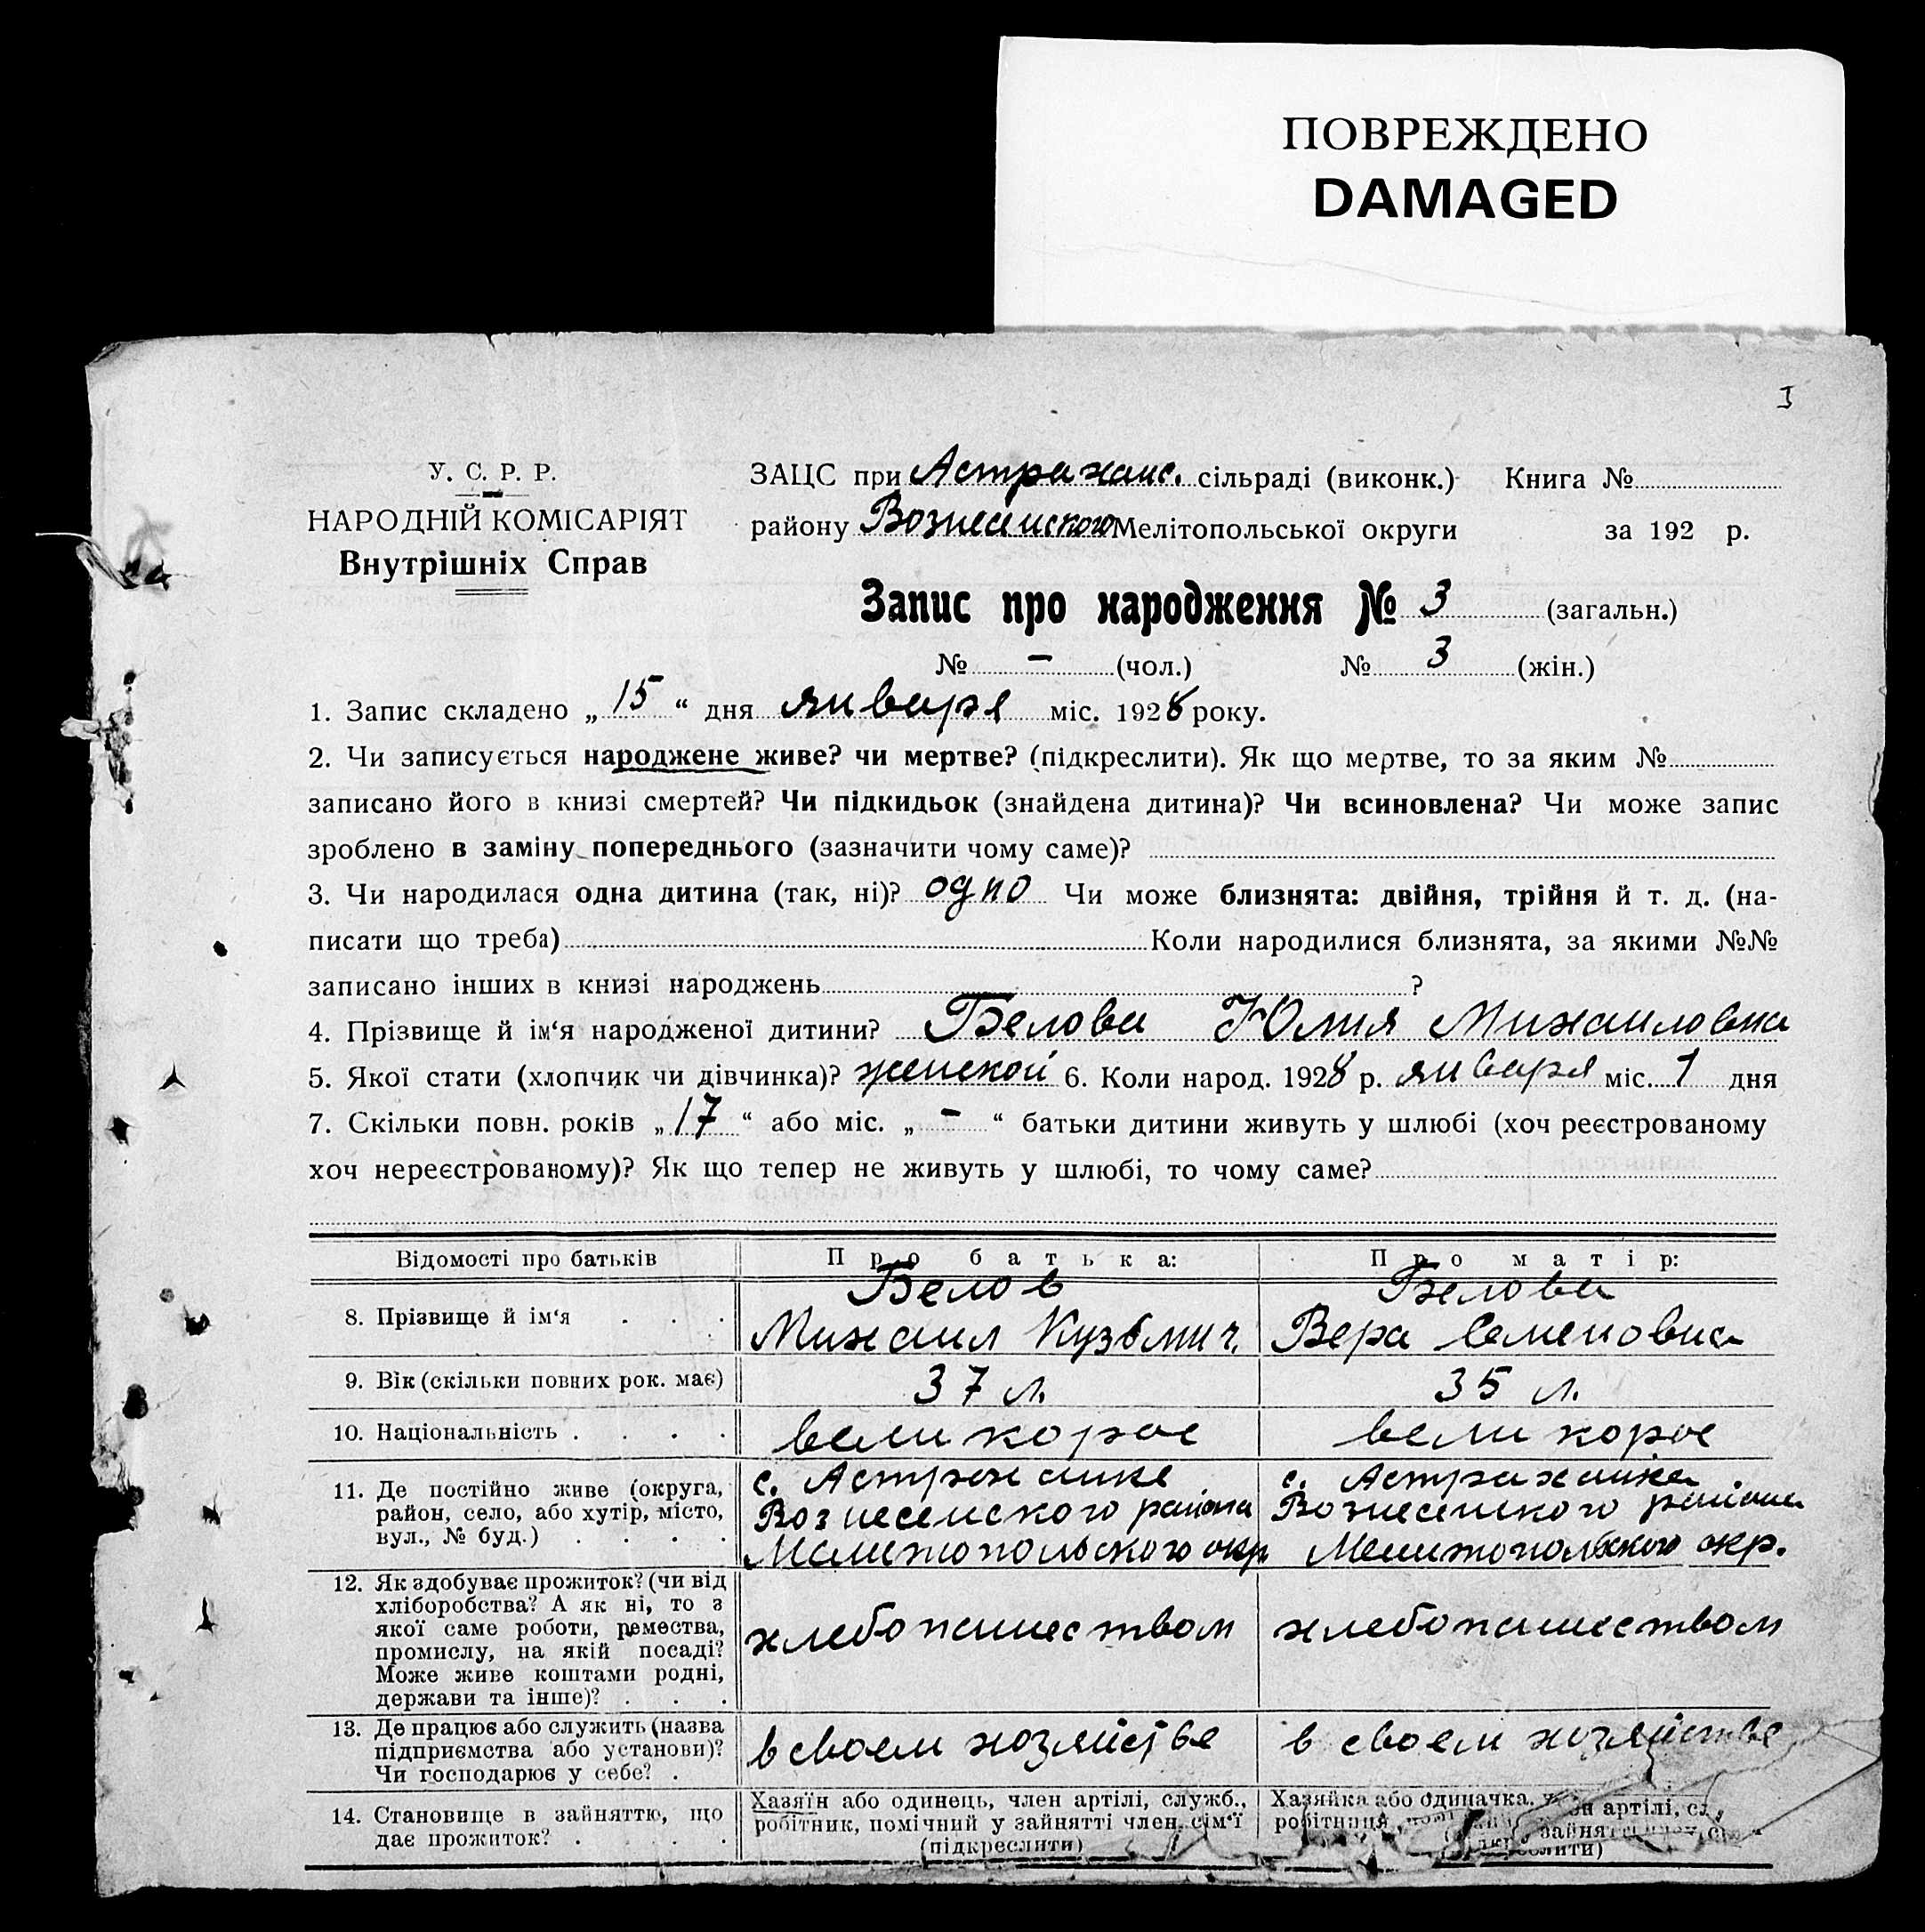 ПОВРЕЖДЕНО
DAMAGED
I
У. С. Р. Р.
НАРОДНІЙ КОМІСАРІЯТ
Внутрішніх Справ
ЗАЦС при Астрахан. сільраді (виконк.) Книга №
району Вознесенского Мелітопольської округи за 192 р.
Запис про народження № 3 (загальн.)
№ – (чол.) № 3 (жін.)
1. Запис складено „15“ дня января міс. 1928 року.
2. Чи записується народжене живе? чи мертве? (підкреслити). Як що мертве, то за яким №
записано його в книзі смертей? Чи підкидьок (знайдена дитина)? Чи всиновлена? Чи може запис
зроблено в заміну попереднього (зазначити чому саме)?
3. Чи народилася одна дитина (так, ні)? одно Чи може близнята: двійня, трійня й т. д. (на-
писати що треба) Коли народилися близнята, за якими №№
записано інших в книзі народжень ?
4. Прізвище й ім‘я народженої дитини? Белова Юлия Михаиловна
5. Якої стати (хлопчик чи дівчинка)? женской 6. Коли народ. 1928 р. января міс. 1 дня
7. Скільки повн. років „17“ або міс. „–“ батьки дитини живуть у шлюбі (хоч реєстрованому
хоч нереєстрованому)? Як що тепер не живуть у шлюбі, то чому саме?
Відомості про батьків Про батька: Про матір:
8. Прізвище й ім‘я . . . Белов Михаил Кузьмич. Белова Вера Семеновна
9. Вік (скільки повних рок. має) 37 л. 35 л.
10. Національність . . . . великорос великорос
11. Де постійно живе (округа, с. Астраханке с. Астраханка
район, село, або хутір, місто, Вознесенского района Вознесенского района
вул., № буд.) . . . . Мелитопольского окр. Мелитопольского окр.
12. Як здобуває прожиток? (чи від
хліборобства? А як ні, то з
якої саме роботи, ремества, хлебопашеством хлебопашеством
промислу, на якій посаді?
Може живе коштами родні,
держави та інше)? . . .
13. Де працює або служить (назва
підприємства або установи)? в своем хозяйстве в своем хозяйстве
Чи господарює у себе? .
14. Становище в зайняттю, що Хазяїн або одинець, член артілі, служб., Хазяйка або одиначка, артілі,
дає прожиток? . . . . робітник, помічний у зайнятті член сім‘ї робітниця зайнятті
(підкреслити)